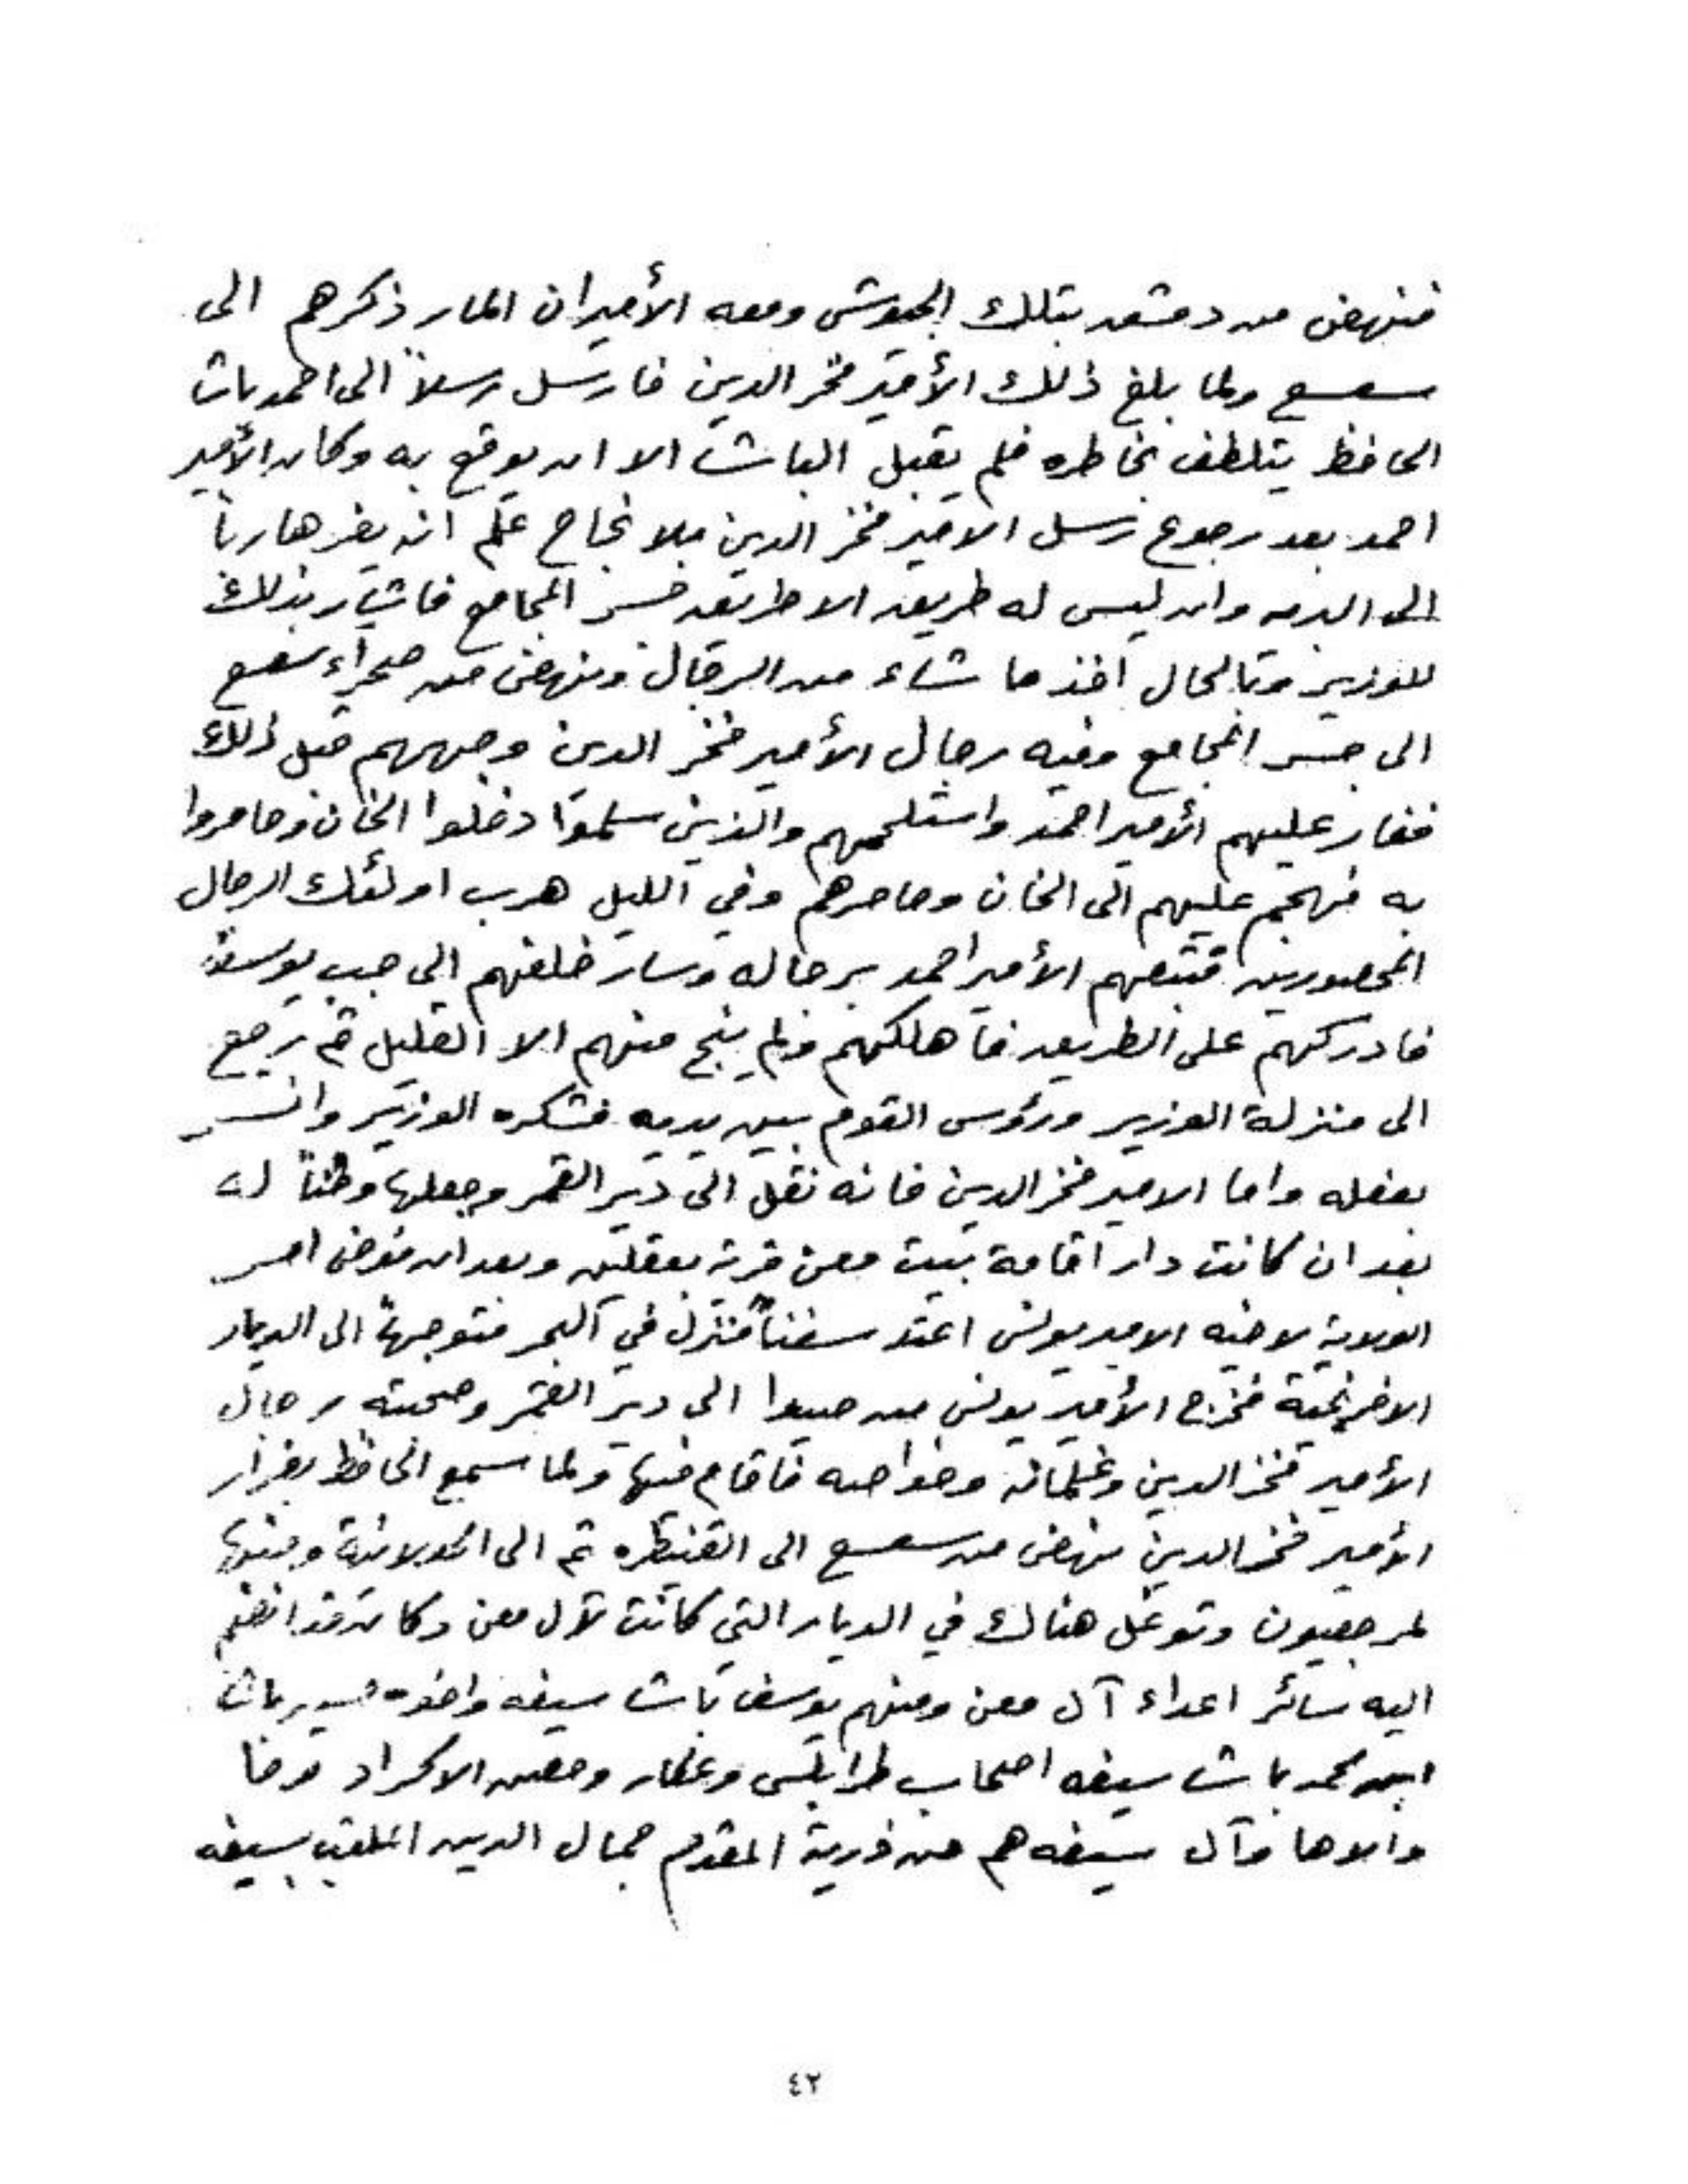 فنهض من دمشق بتلك الجيوش ومعه الأميران المار ذكرهم الى
سعسع ولما بلغ ذلك الأمير فخر الدين فارسل رسلاً الى احمد باشا
الحافظ يتلطف بخاطره فلم يقبل الباشا الا ان يوقع به وكان الأمير
احمد بعد رجوع رسل الامير فخر الدين بلا نجاح علم انه يفر هارباً
الى البر وان ليس له طريق الا طريق جسر المجامع فاشار بذلك
للوزير وبالحال أخذ ما شاء من الرجال ونهض من صحراء سعسع
الى جسر المجامع وفيه رجال الأمير فخر الدين وجههم قبل ذلك
فغار عليهم الأمير احمد واستلحمهم والذين سلموا دخلوا الخان وحاصروا
به فهجم عليهم الى الخان وحاصرهم وفي الليل هرب اولئك الرجال
المحصورين فتبعهم الأمير احمد برجاله وسار خلفهم الى جب يوسف
فادركهم على الطريق فأهلكهم ولم ينج منهم الا القليل ثم رجع
الى منزلة الوزير ورؤس القوم بين يديه فشكره الوزير وانسر
بفعله واما الامير فخر الدين فانه نقل الى دير القمر وجعلها وطناً له
بعد ان كانت دار اقامة بيت معن قرية بعقلين وبعد ان فوض امر
الولاية لاخيه الامير يونس اعتد سفناً فنزل في البحر متوجهاً الى الديار
الافرنجية فخرج الأمير يونس من صيدا الى دير القمر وصحبته رجال
الأمير فخر الدين وغلمانه وخواصه فاقام فيها ولما سمع الحافظ بفرار
الأمير فخر الدين نهض من سعسع الى القنيطره ثم الى الحولانية ومنها
لمرجعيون وتوغل هناك في الديار التي كانت لآل معن وكان قد انضم
اليه سائر اعداء آل معن ومنهم يوسف باشا سيفه واخوه باشا
ابن محمد باشا سيفه اصحاب طرابلس وعكار وحصن الاكراد وما
والاها وآل سيفه هم من ذرية المقدم جمال الدين الملقب بسيفه
٤٢